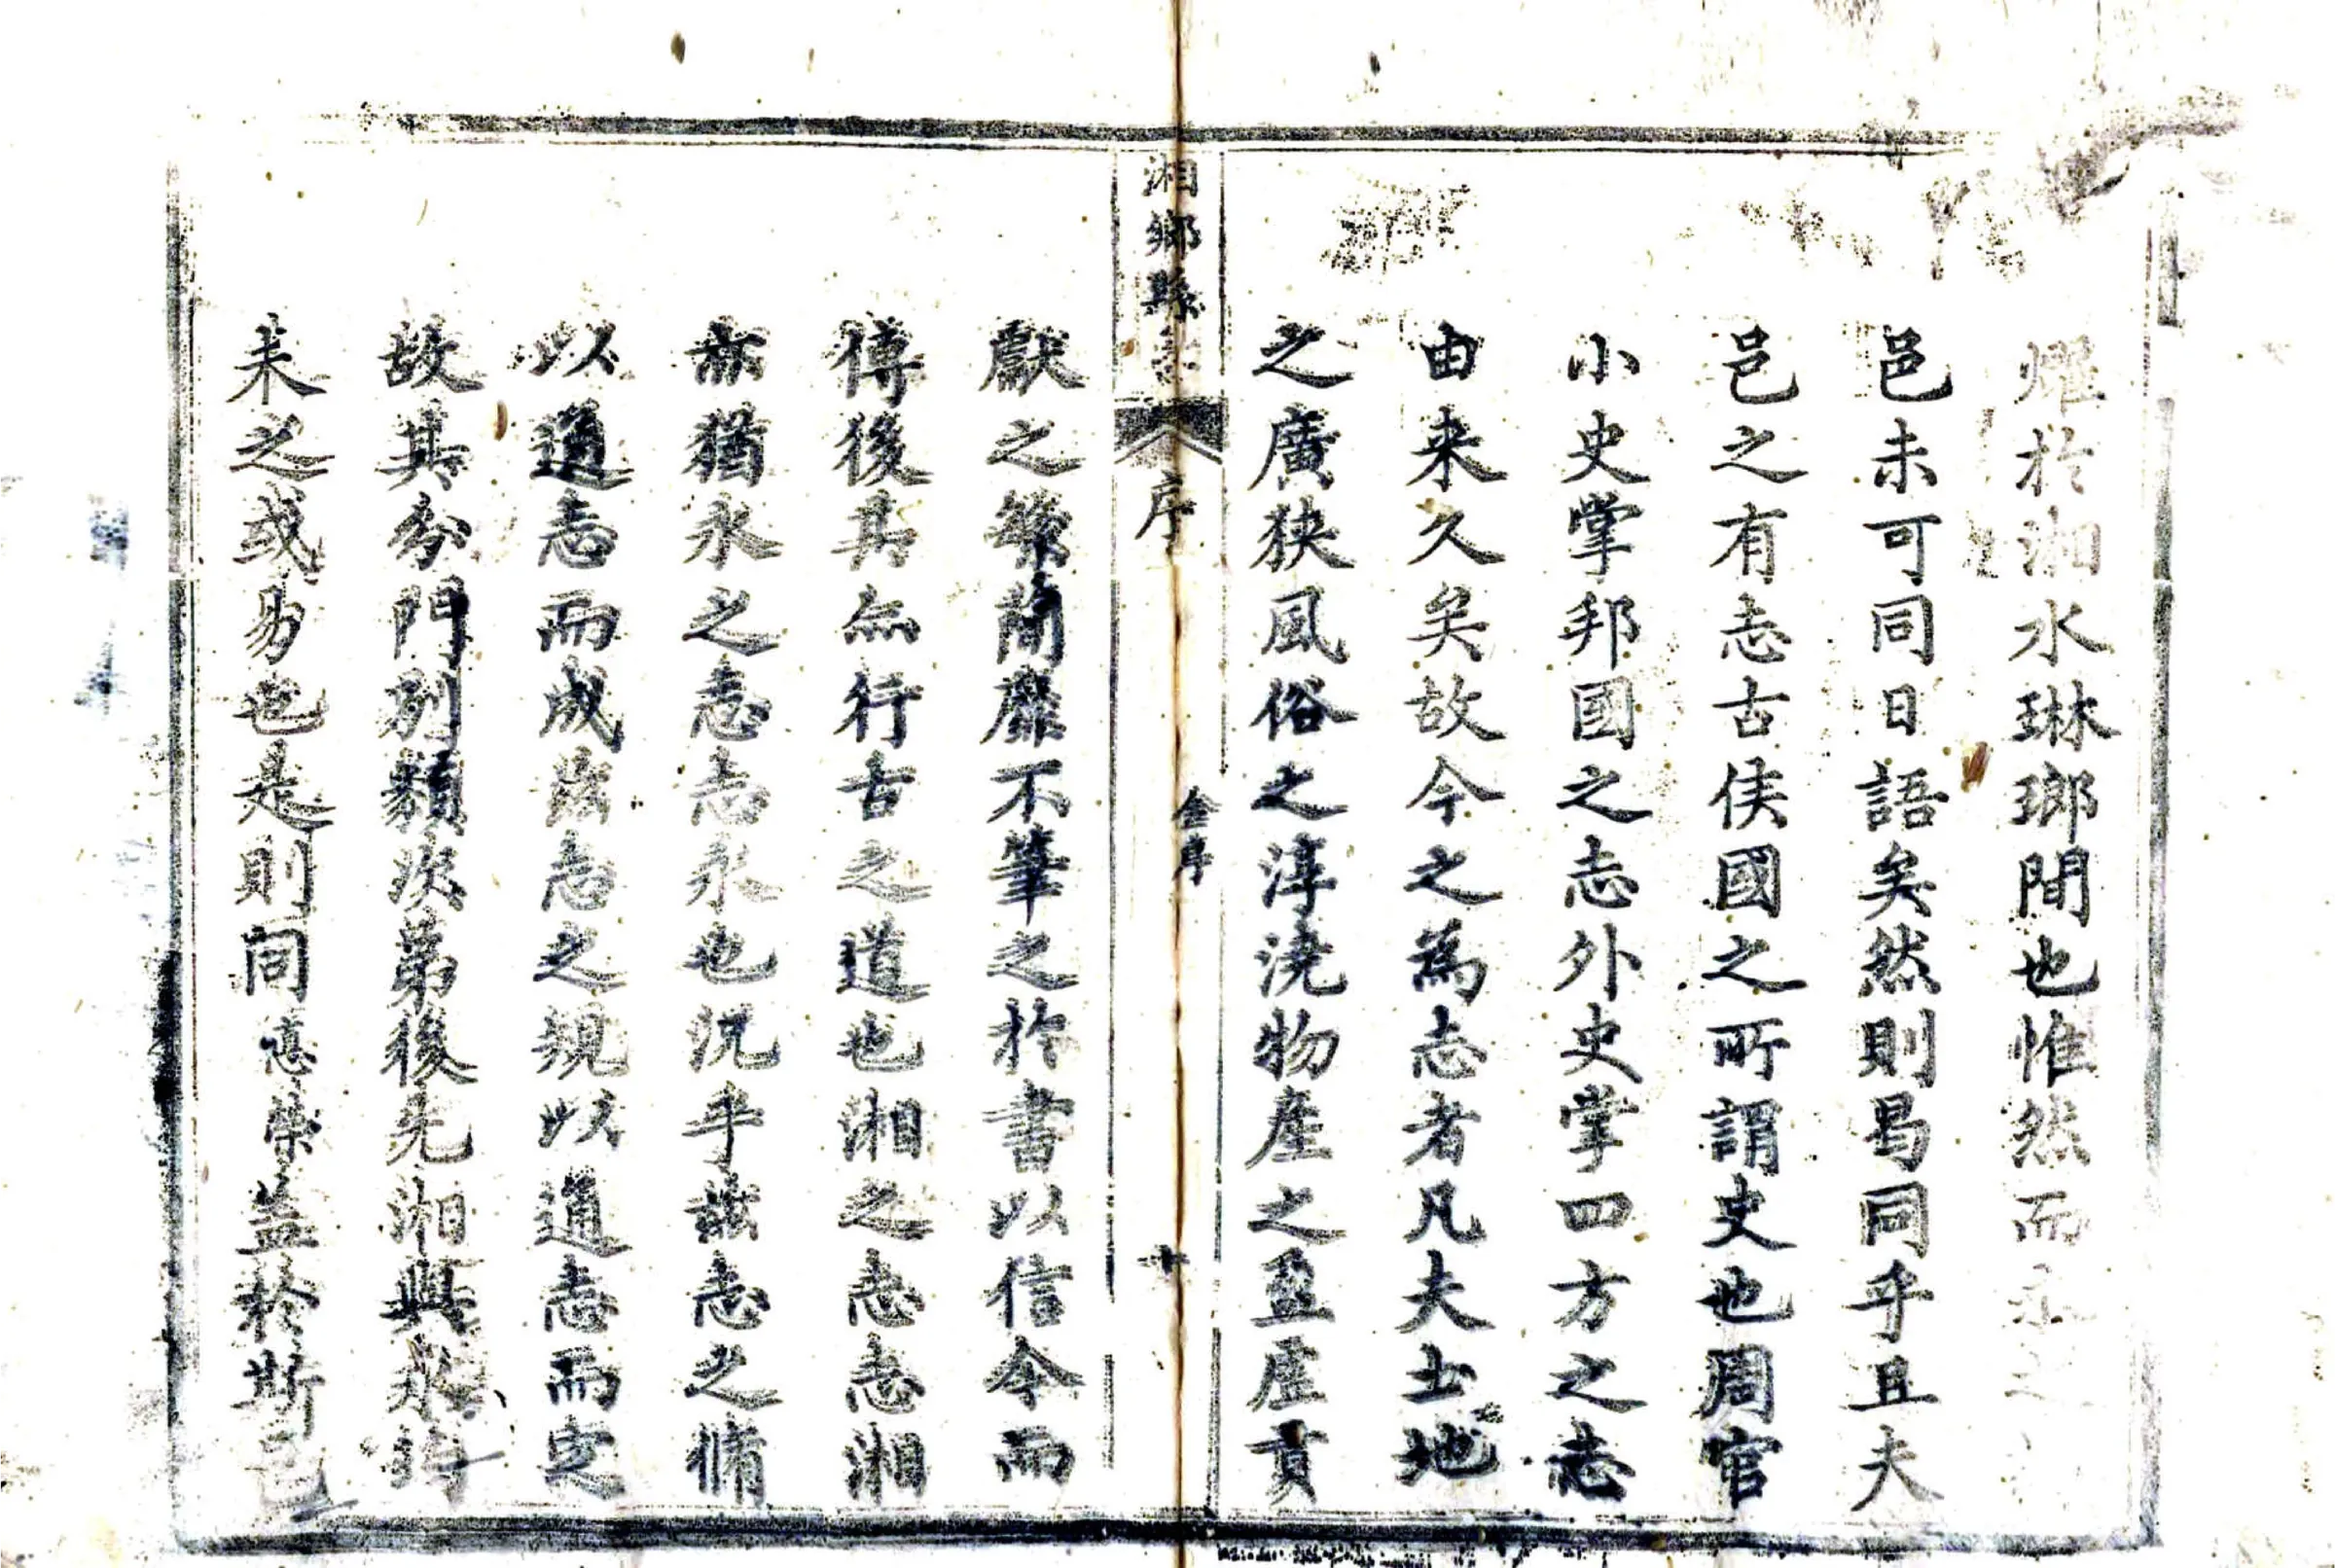 燿於湘水琳瑯間也惟然而永之
邑未可同日語矣然則曷同乎且夫
邑之有志古侯國之所謂史也周官
小史掌邦國之志外史掌四方之志
由来久矣故今之為志者凡夫土地
之廣狹風俗之淳澆物產之盈虛貢
湘鄉縣志
序
全序
十
獻之繁簡靡不筆之於書以信今而
傳後其亦行古之道也湘之志志湘
亦猶永之志志永也況乎茲志之脩
以通志而成茲志之規以通志而定
故其分門別類次第後先湘與永均
未之或易也是則同憲榮蓋於斯已